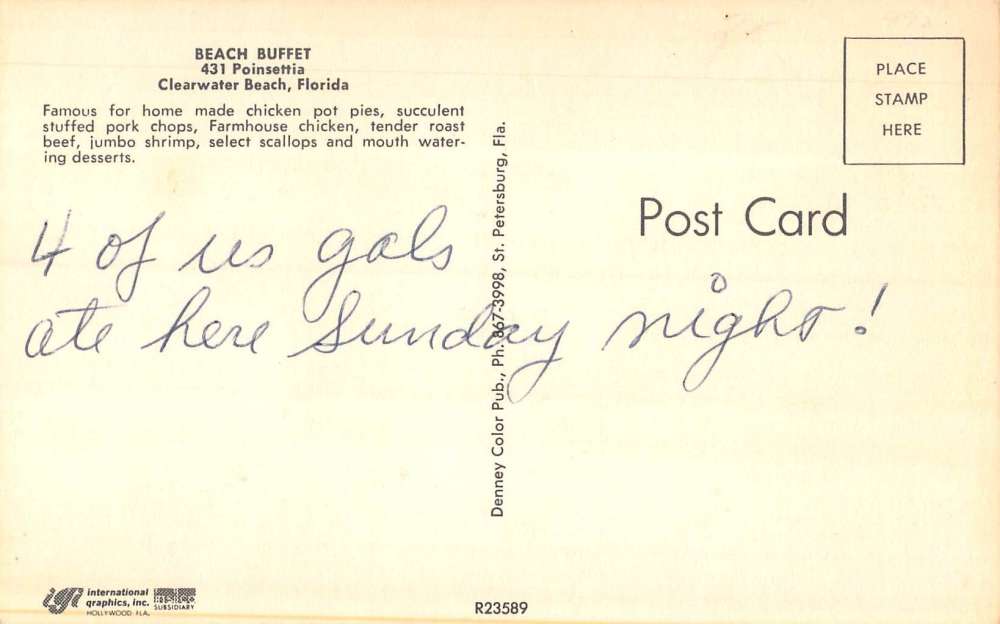 BEACH BUFFET
431 Poinsettia
Clearwater Beach, Florida
Famous for home made chicken pot pies, succulent
stuffed pork chops, Farmhouse chicken, tender roast
beef, jumbo shrimp, select scallops and mouth water-
ing desserts.
PLACE
STAMP
HERE
Post Card
4 of us gals
ate here Sunday night!
Denney Color Pub., Ph. 867-3998, St. Petersburg, Fla.
igi international
graphics, inc.
HOLLYWOOD FLA.
SUBSIDIARY
R23589